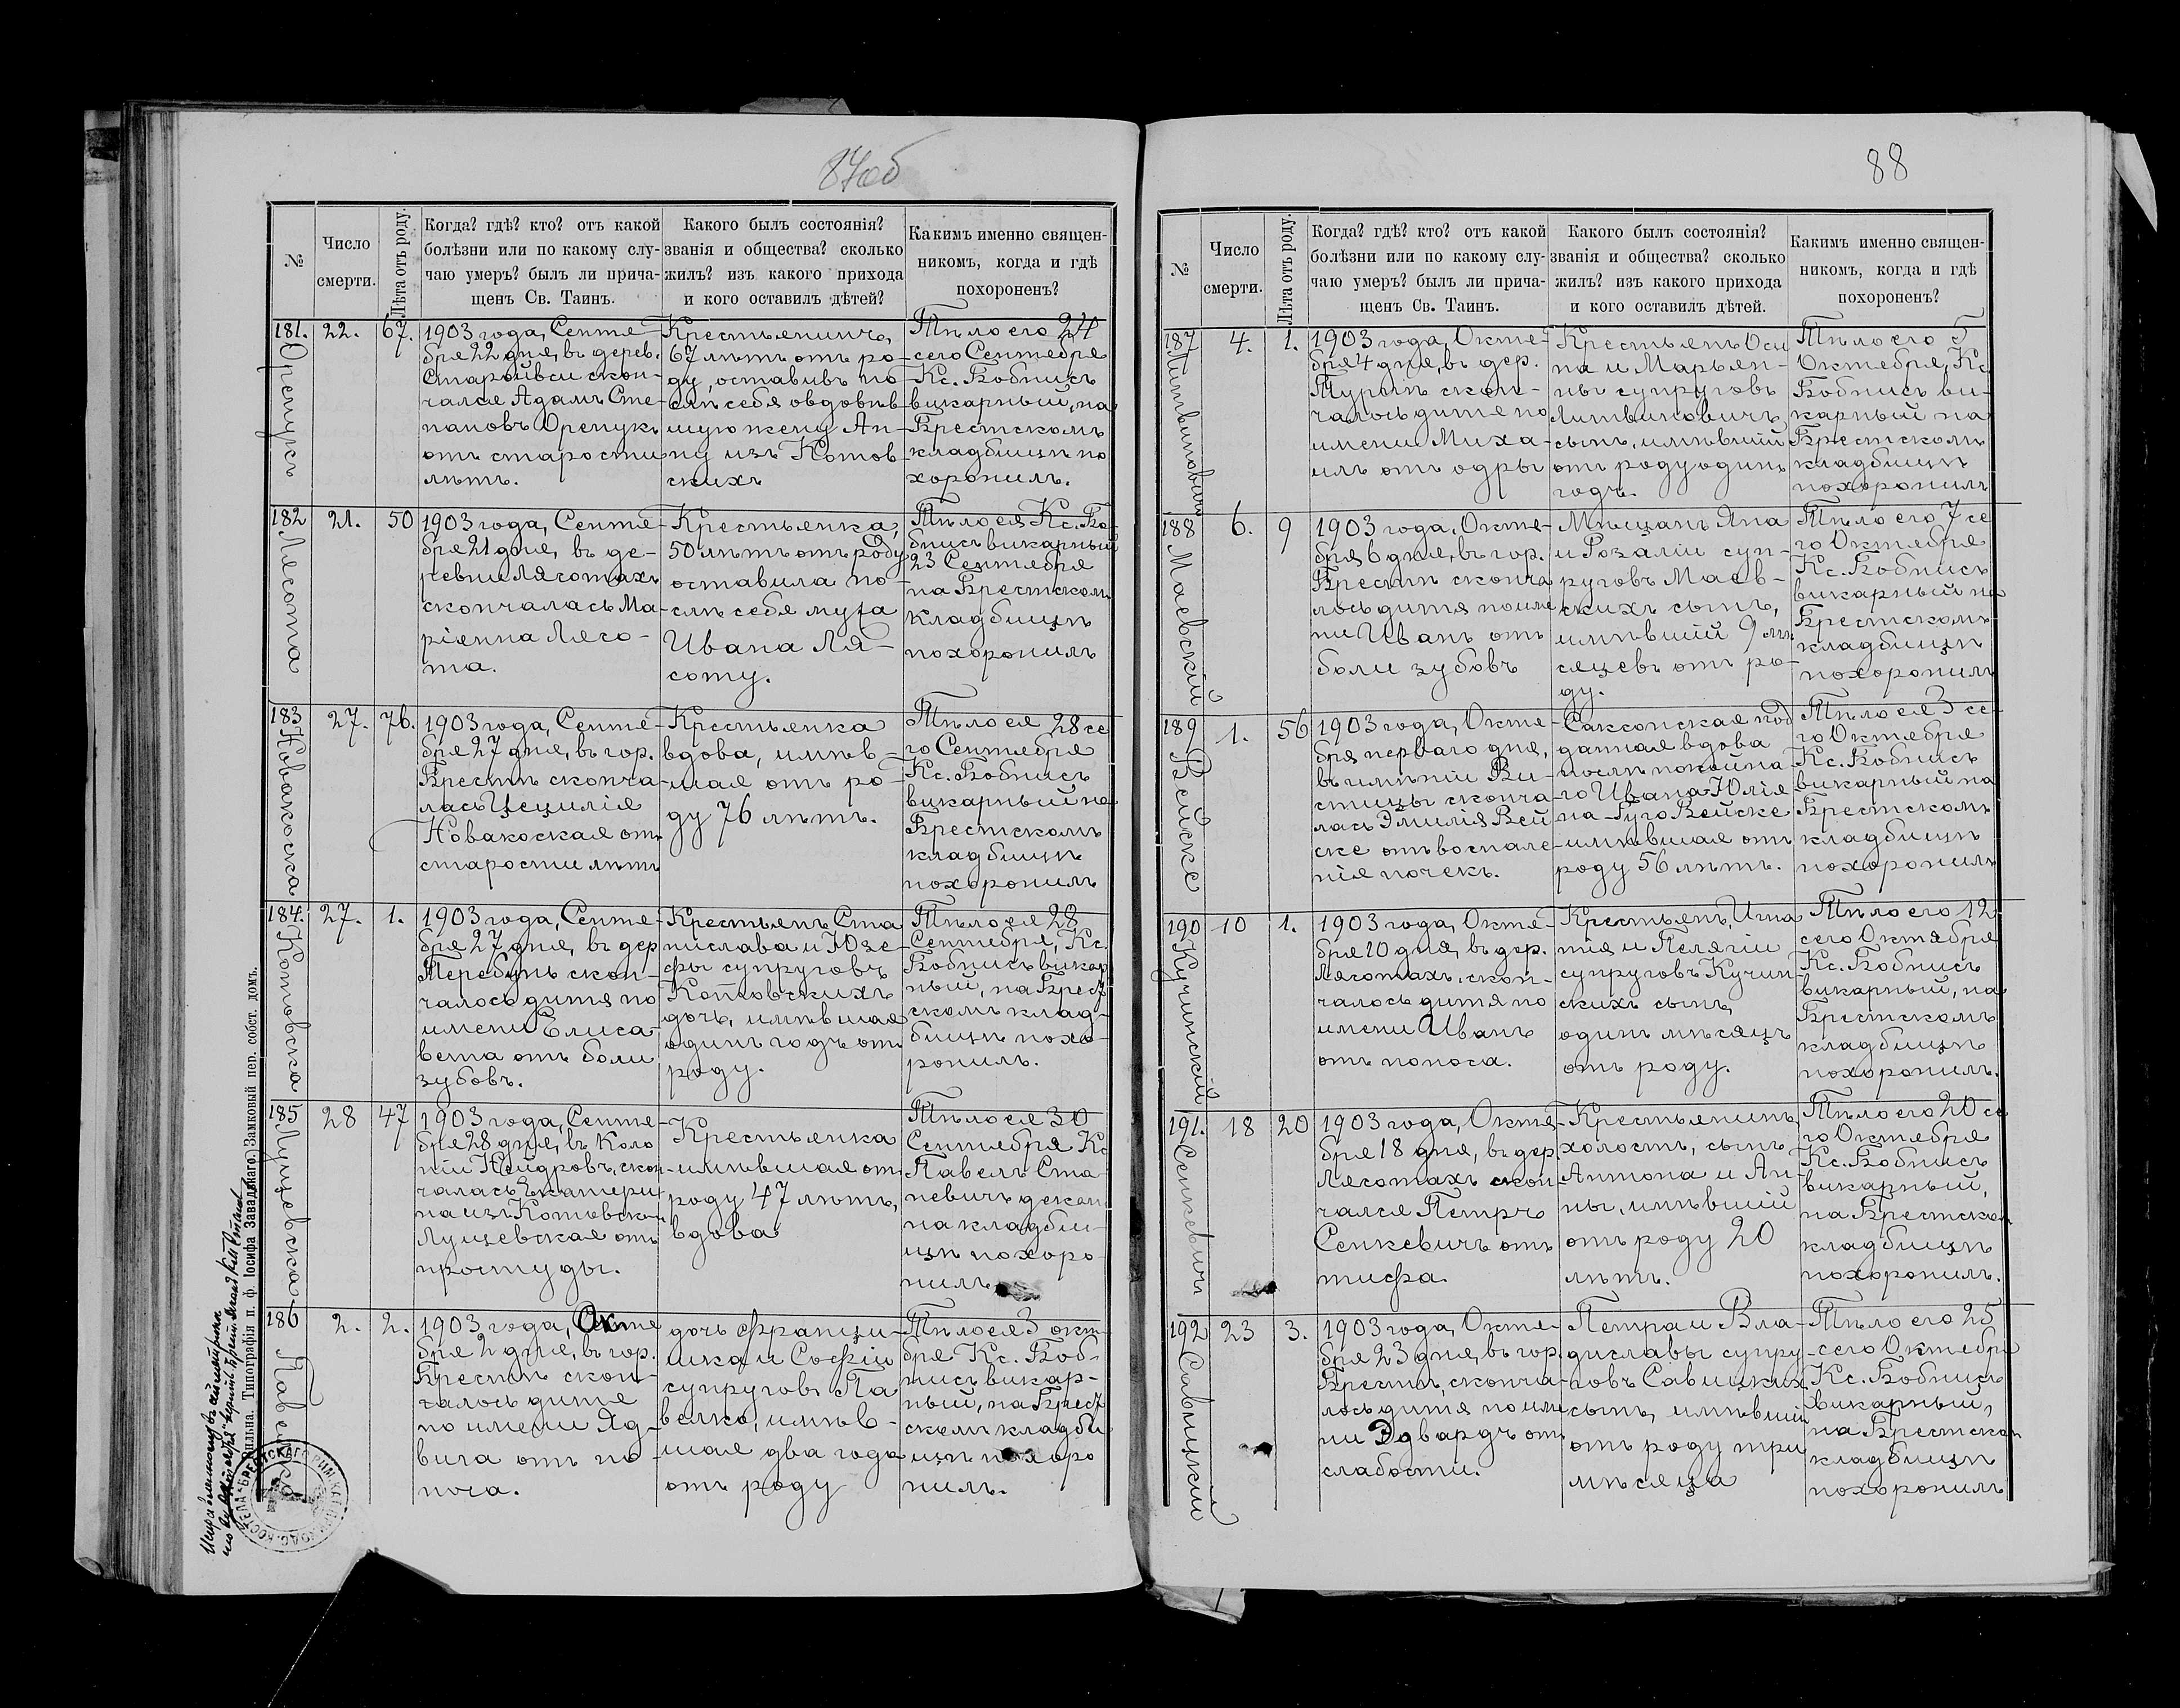 87об
№
Число
смерти.
Лѣта отъ роду.
Когда? гдѣ? кто? отъ какой
болѣзни или по какому слу-
чаю умеръ? былъ ли прича-
щенъ Св. Таинъ.
Какого былъ состоянія?
званія и общества? сколько
жилъ? изъ какого прихода
и кого оставилъ дѣтей?
Какимъ именно священ-
никомъ, когда и гдѣ
похороненъ?
181.
Орепукъ
22.
67.
1903 года, Сентя-
бря 22 дня, въ дерев.
Старойвси скон-
чался Адамъ Сте-
пановъ Орепукъ
отъ старости
лѣтъ.
Крестьянинъ,
67 лѣтъ отъ ро-
ду, оставивъ по
слѣ себя овдовѣв-
шую жену Ан-
ну изъ Котов-
скихъ
Тѣло его 24
сего Сентября
Кс. Бобнисъ
викарный, на
Брестскомъ
кладбищѣ по
хоронилъ.
182
Лясота
21.
50
1903 года, Сентя-
бря 21 дня, въ де-
ревни Лясотахъ
скончалась Ма-
ріянна Лясо-
та.
Крестьянка,
50 лѣтъ отъ роду,
оставила по-
слѣ себя мужа
Ивана Ля-
соту.
Тѣло ея Кс. Бо-
бнисъ викарный
23 Сентября
на Брестскомъ
кладбищѣ
похоронилъ
183
Новакоска
27.
76.
1903 года, Сентя-
бря 27 дня, въ гор.
Брестѣ сконча-
лась Цецилія
Новакоская отъ
старости лѣтъ
Крестьянка
вдова, имѣв-
шая отъ ро-
ду 76 лѣтъ.
Тѣло ея 28 се
го Сентября
Кс. Бобнисъ
викарный на
Брестскомъ
кладбищѣ
похоронилъ
184.
Котовска
27.
1.
1903 года, Сентя-
бря 27 дня, въ дер
Теребунь скон-
чалось дитя по
имени Елиса-
вета отъ боли
зубовъ.
Крестьянъ Ста
нислава и Юзе-
фы супруговъ
Котовскихъ
дочь, имѣвшая
одинъ годъ отъ
роду.
Тѣло ея 28
Сентября, Кс.
Бобнисъ викар
ный, на Брест
скомъ клад-
бищѣ похо-
ронилъ.
185
Луцевска
28
47
1903 года, Сентя-
бря 28 дня, въ Коло
ніи Нейдровъ, скон
чалась Екатери
на изъ Котовск
Луцевская отъ
простуды.
Крестьянка
имѣвшая отъ
роду 47 лѣтъ,
вдова
Тѣло ея 30
Сентября Кс
Павелъ Ста
невичъ декан
на кладби-
щѣ похоро
нилъ.
186
2.
2.
1903 года, Октя
бря 2 дня, въ гор.
Брестѣ скон-
чалось дитя
по имени Яд-
вига отъ по-
носа.
дочь Франци-
шка и Софіи
супруговъ Па
велко, имѣв-
шая два года
отъ роду
Тѣло ея 3 окт
бря Кс. Боб-
нисъ викар-
ный, на Брест
скомъ кладби
щѣ похоро
нилъ.
Вильна. Типографія п. ф. Іосифа Завадзкаго. Замковый пер. собст. домъ.
88
№
Число
смерти.
Лѣта отъ роду.
Когда? гдѣ? кто? отъ какой
болѣзни или по какому слу-
чаю умеръ? былъ ли прича-
щенъ Св. Таинъ.
Какого былъ состоянія?
званія и общества? сколько
жилъ? изъ какого прихода
и кого оставилъ дѣтей.
Какимъ именно священ-
никомъ, когда и гдѣ
похороненъ?
187
Литвиновичъ
4.
1.
1903 года, Октя-
бря 4 дня, въ дер.
Турнѣ скон-
чалось дитя по
имени Миха-
илъ отъ одры
Крестьянъ Оси
па и Марьян-
ны супруговъ
Литвиновичъ
сынъ, имѣвшій
отъ роду одинъ
годъ.
Тѣло его 5
Октября, Кс
Бобнисъ ви-
карный на
Брестскомъ
кладбищѣ
похоронилъ
188
Маевскій
6.
9
1903 года, Октя-
бря 6 дня, въ гор.
Брестѣ сконча
лось дитя по име
ни Иванъ отъ
боли зубовъ
Мѣщанъ Яна
и Розаліи суп-
руговъ Маев-
скихъ сынъ,
имѣвшій 9 мѣ
сяцевъ отъ ро-
ду.
Тѣло его 7 се
го Октября
Кс. Бобнисъ
викарный на
Брестскомъ
кладбищѣ
похоронилъ
189
Вейске
1.
56
1903 года, Октя-
бря перваго дня,
въ имѣніи Ви-
стицы сконча
лась Эмилія Вей
ске отъ воспале
нія почекъ.
Саксонская под
данная вдова
послѣ покойна
го Ивана-Юлія
на-Гуго Вейске
имѣвшая отъ
роду 56 лѣтъ.
Тѣло ея 3 се-
го Октября
Кс. Бобнисъ
викарный на
Брестскомъ
кладбищѣ
похоронилъ
190
Кучинскій
10
1.
1903 года, Октя-
бря 10 дня, въ дер.
Лясотахъ, скон-
чалось дитя по
имени Иванъ
отъ поноса.
Крестьянъ, Игна
тія и Пелягіи
супруговъ Кучин-
скихъ сынъ,
одинъ мѣсяцъ
отъ роду.
Тѣло его 12
сего Октября
Кс. Бобнисъ
викарный, на
Брестскомъ
кладбищѣ
похоронилъ.
191.
Сенкевичъ
18
20
1903 года, Октя-
бря 18 дня, въ дер.
Лясотахъ скон-
чался Петръ
Сенкевичъ отъ
тифа.
Крестьянинъ,
холостъ, сынъ
Антона и Ан-
ны, имѣвшій
отъ роду 20
лѣтъ.
Тѣло его 20 се
го Октября
Кс. Бобнисъ
викарный,
на Брестском
кладбищѣ
похоронилъ.
192
Савицкій
23
3.
1903 года, Октя-
бря 23 дня, въ гор.
Брестѣ, сконча-
лось дитя по име
ни Эдвардъ отъ
слабости.
Петра и Вла-
диславы супру
говъ Савицких
сынъ, имѣвшій
отъ роду три
мѣсяца
Тѣло его 25
сего Октября
Кс. Бобнисъ
викарный,
на Брестском
кладбищѣ
похоронилъ